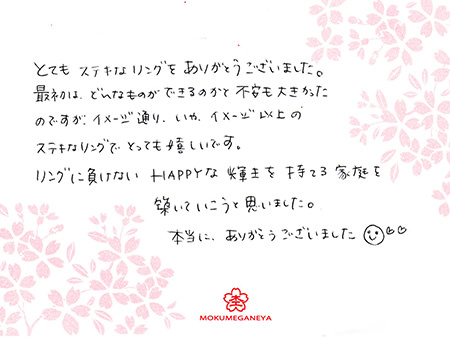 とても ステキなリングを ありがとうございました。
最初は、どんなものができるのかと 不安も大きかった
のですが、イメージ通り、いや、イメージ以上の
ステキなリングで とっても嬉しいです。
リングに負けない HAPPYな 輝きを 持てる 家庭を
築いていこうと思いました。
本当に、ありがとうございました
MOKUMEGANEYA